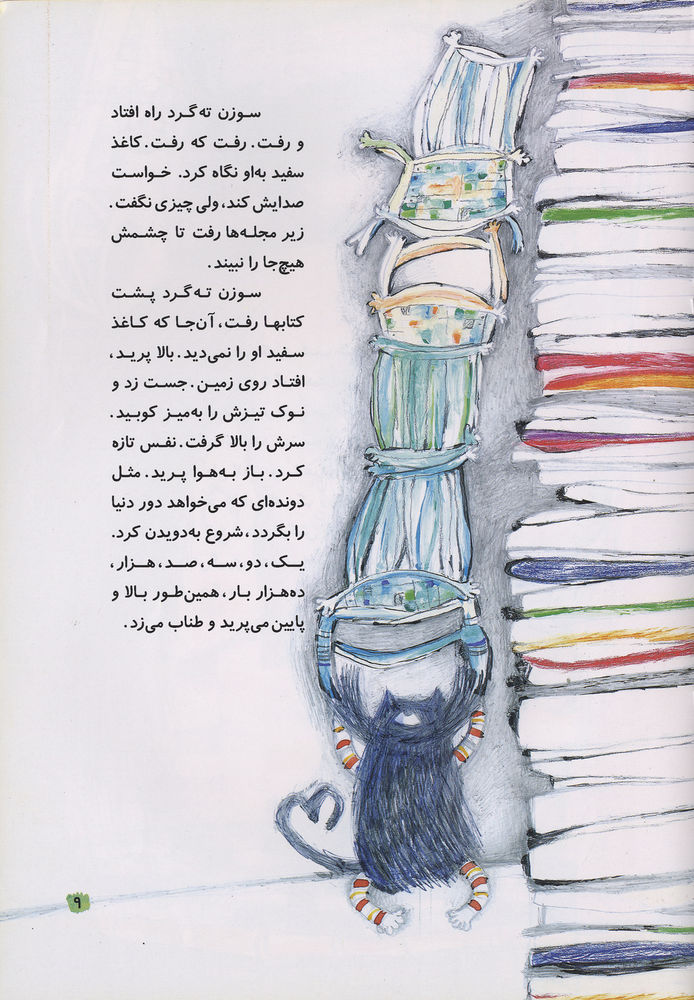 سوزن ته‌گرد راه افتاد
و رفت. رفت که رفت. کاغذ
سفید به‌او نگاه کرد. خواست
صدایش کند، ولی چیزی نگفت.
زیر مجله‌ها رفت تا چشمش
هیچ‌جا را نبیند.
سوزن ته‌گرد پشت
کتابها رفت، آن‌جا که کاغذ
سفید او را نمی‌دید. بالا پرید،
افتاد روی زمین. جست زد و
نوک تیزش را به‌میز کوبید.
سرش را بالا گرفت. نفس تازه
کرد. باز به‌هوا پرید. مثل
دونده‌ای که می‌خواهد دور دنیا
را بگردد، شروع به‌دویدن کرد.
یک، دو، سه، صد، هزار،
ده‌هزار بار، همین‌طور بالا و
پایین می‌پرید و طناب می‌زد.
۹